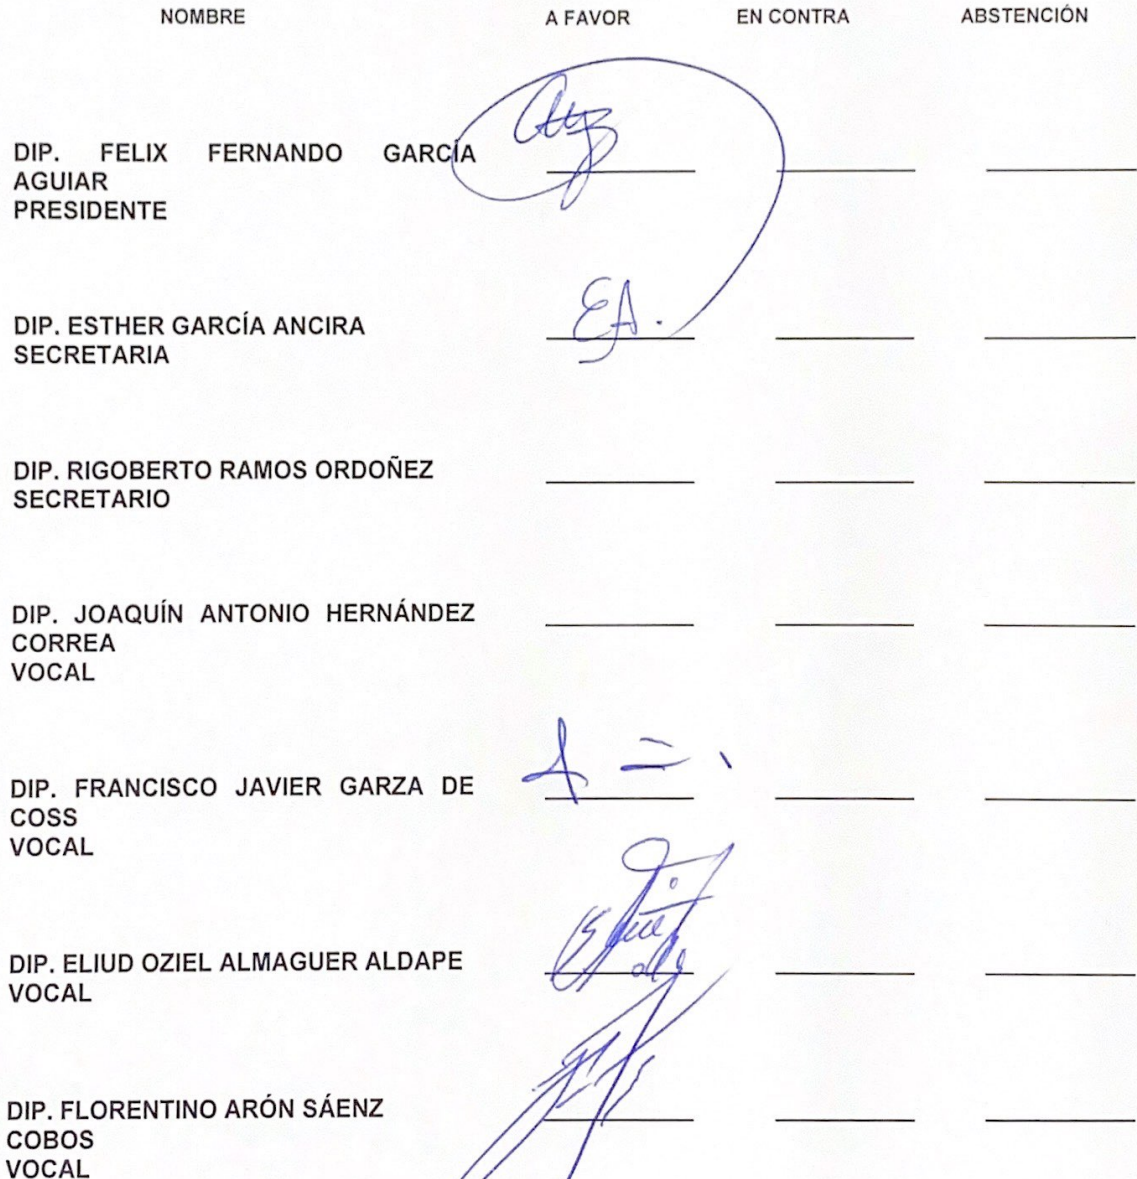 NOMBRE A FAVOR EN CONTRA ABSTENCIÓN
DIP. FELIX FERNANDO GARCÍA
AGUIAR
PRESIDENTE
EA.
DIP. ESTHER GARCÍA ANCIRA
SECRETARIA
DIP. RIGOBERTO RAMOS ORDOÑEZ
SECRETARIO
DIP. JOAQUÍN ANTONIO HERNÁNDEZ
CORREA
VOCAL
DIP. FRANCISCO JAVIER GARZA DE
COSS
VOCAL
DIP. ELIUD OZIEL ALMAGUER ALDAPE
VOCAL
DIP. FLORENTINO ARÓN SÁENZ
COBOS
VOCAL